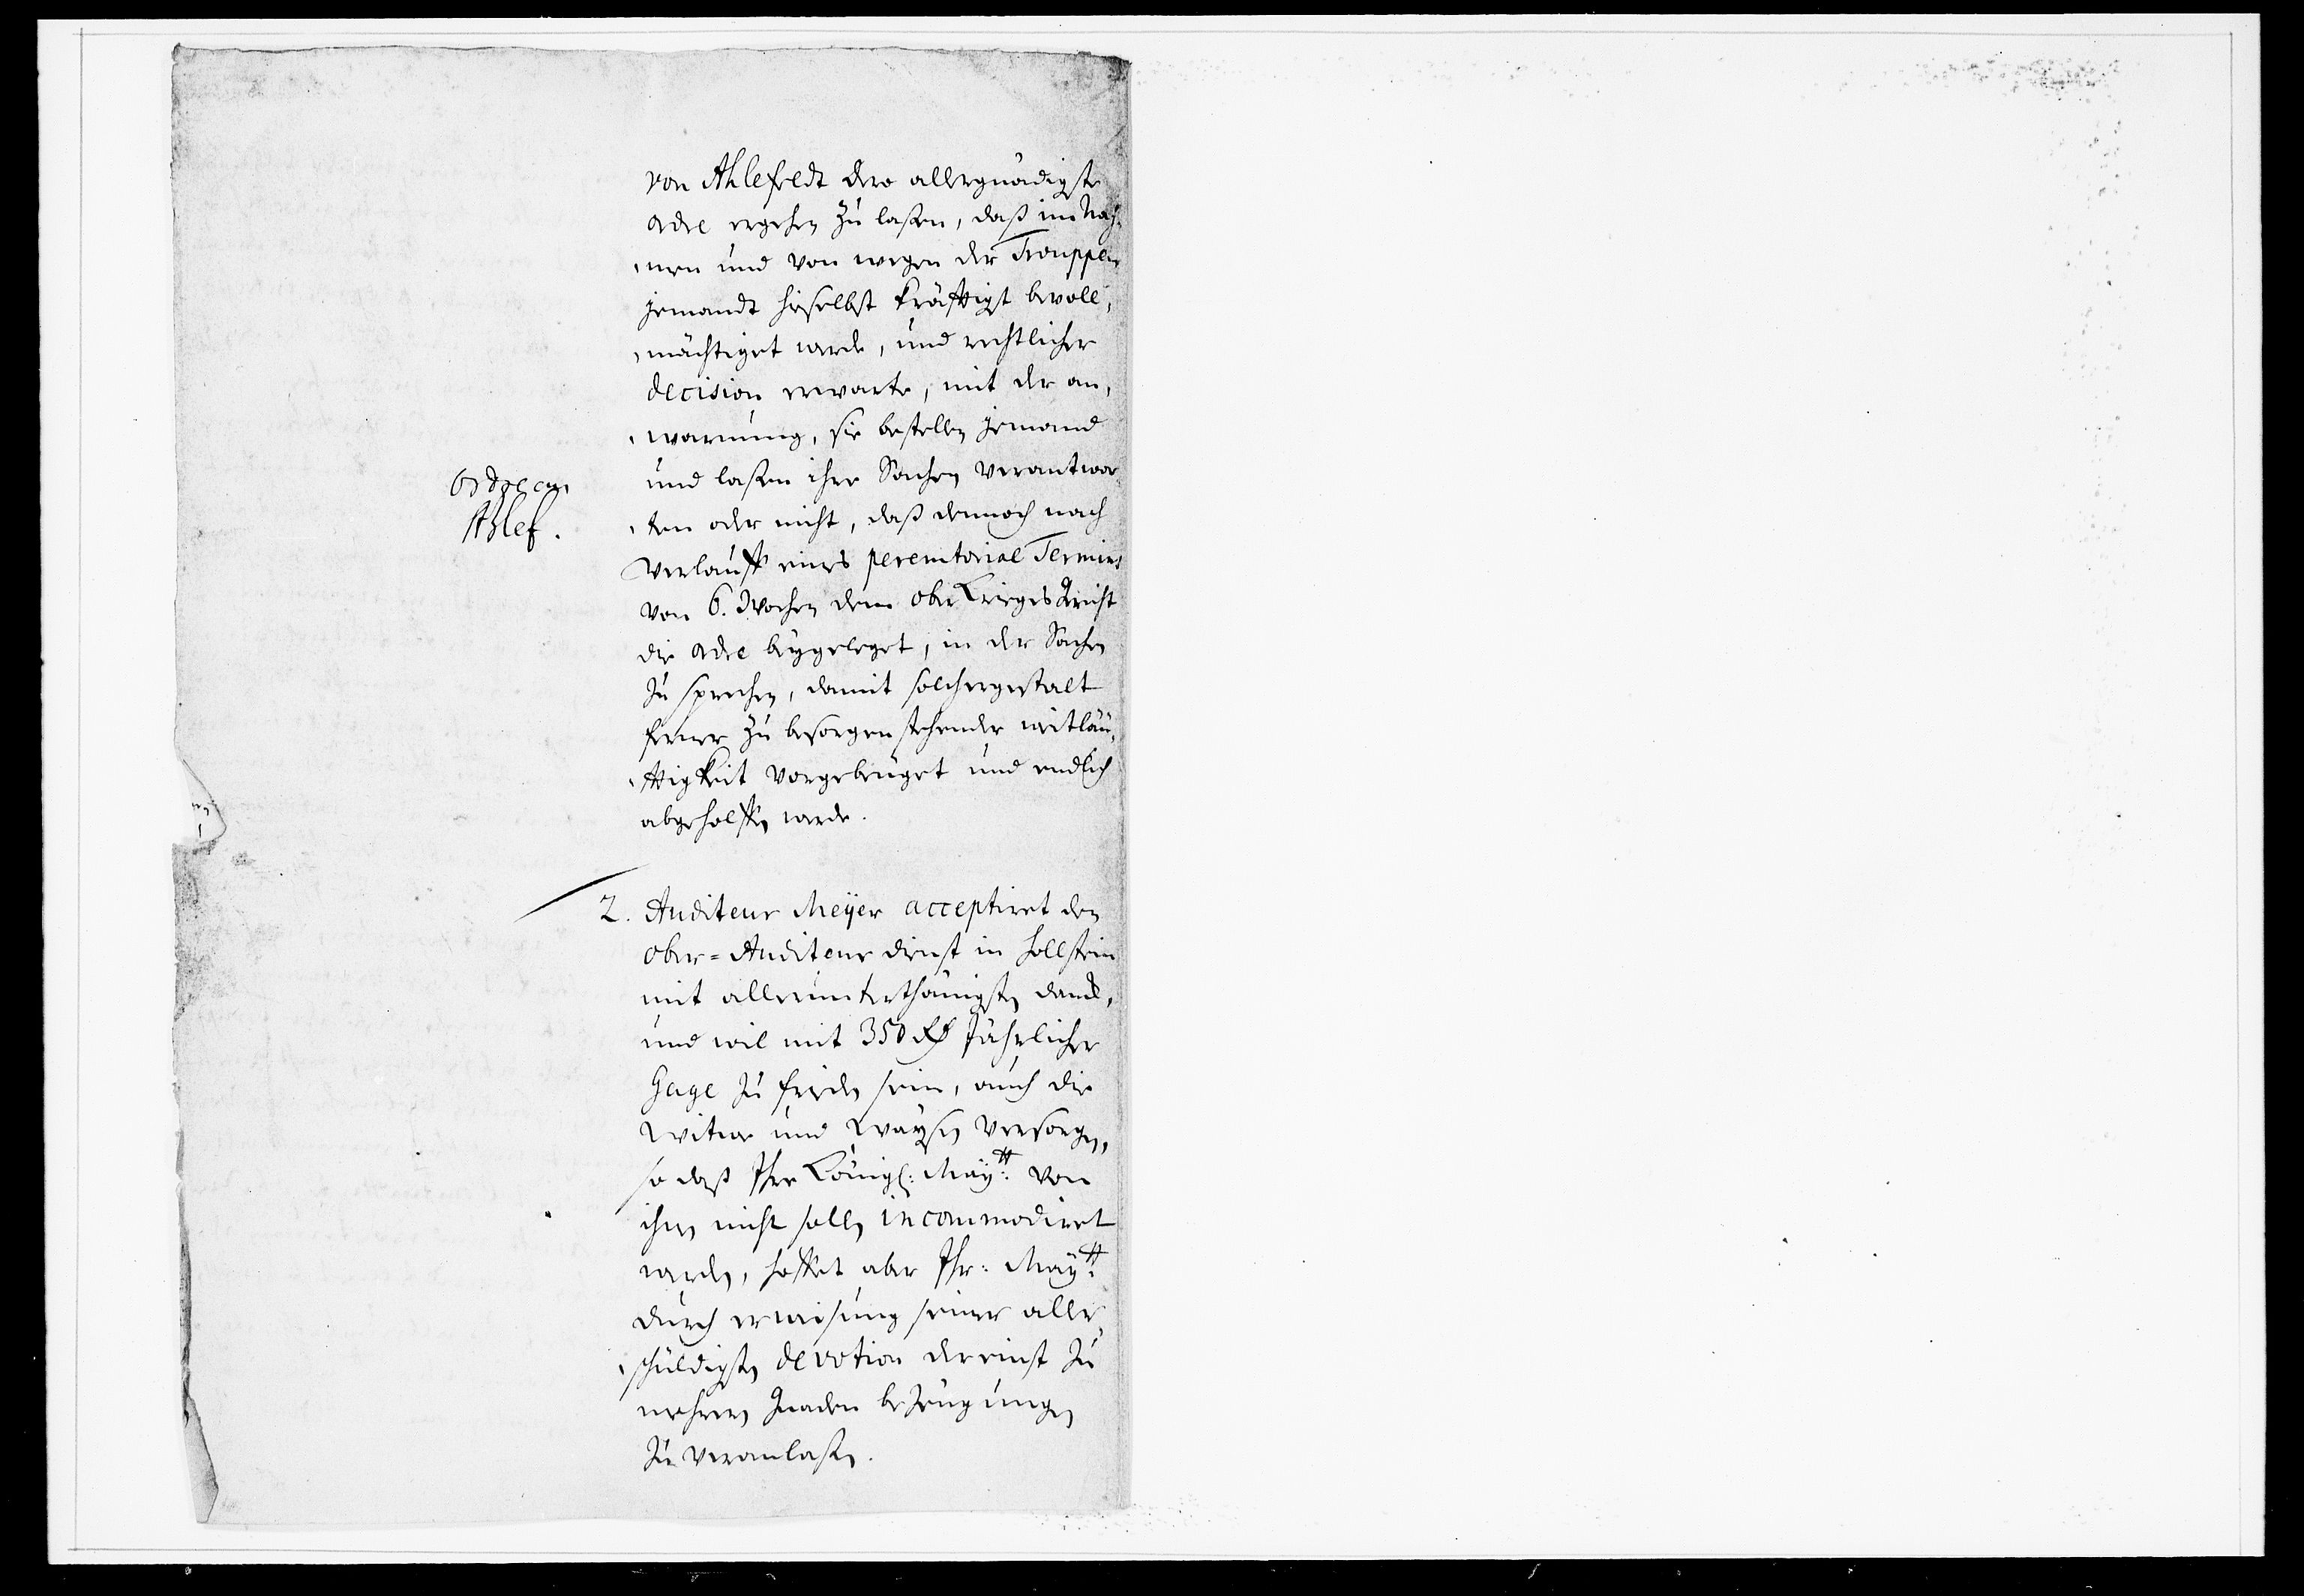 von Ahlefeldt dero allergnädigste
ordre ergehen zu laßen, daß im Nah¬
¬men und von wegen der Trouppen
jemandt hieselbst kräfftigst bevoll¬
¬mächtiget werde, und rechtlicher
decision erwarte, mit der an¬
¬warnung, sie bestellen jemand
und laßen ihre Sachen verantwor¬
¬ten oder nicht, daß dennoch nach
Verlauff eines peremtorial Termins
von 6. Wochen dem ober Krieges Gericht
die ordre beygeleget, in der Sachen
zu sprechen, damit solchergestalt
ferner zu besorgen stehender weitläü¬
¬fftigkeit vorgebeüget und endlich
abgeholffen werde.
Ordre an
Ahlef.
2. Auditeur Meÿer acceptiret den
ober=Auditeur dienst in Hollstein
mit allerunterthänigsten danck,
und wil mit 350 Rd Jährlicher
Gage zu frieden sein, auch die
Witwe und Waÿsen versorgen,
so daß Ihre Königl: Maÿtt: von
ihnen nicht sollen incommodiret
werden, hoffet aber Ihr: Maÿtt:
durch erweisung seiner aller¬
¬schüldigsten devotion dereinst zu
mehren Gnaden bezeugungen
zu veranlaßen.